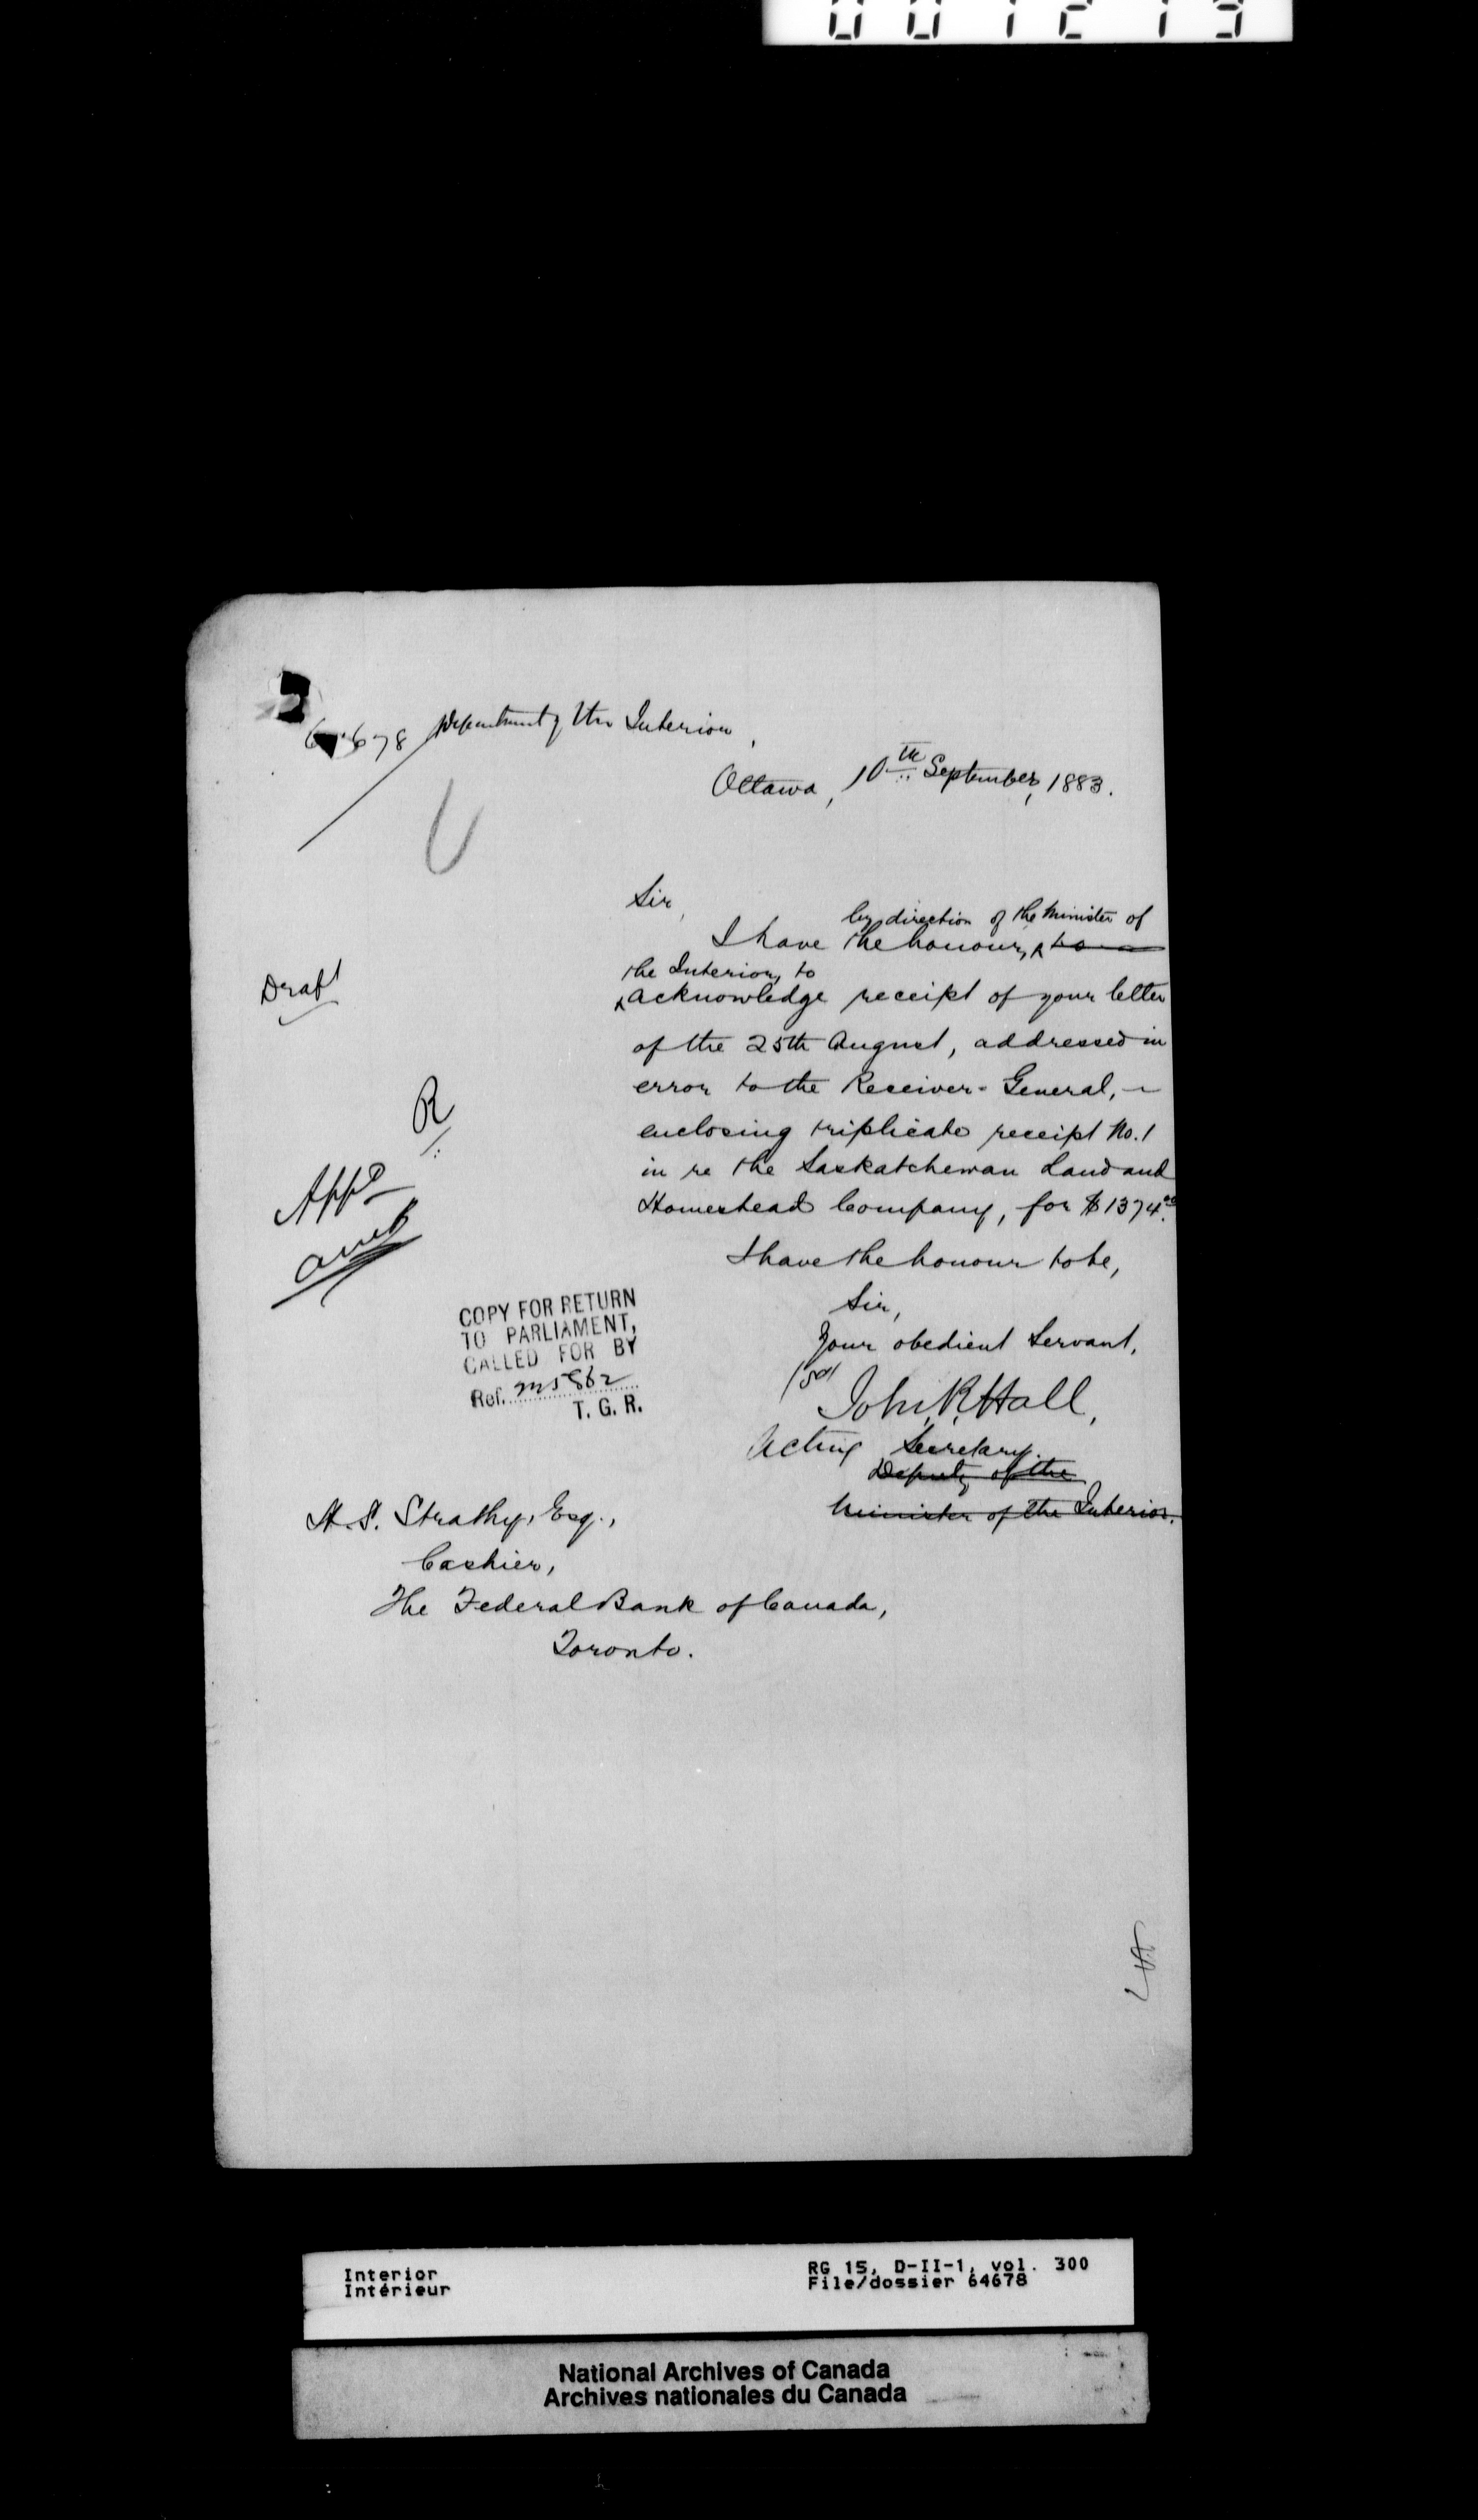 001213
64678
Department of the Interior,
Ottawa, 10th September, 1883.
Sir,
by direction of the Minister of
I have the honour, ^ to
the Interior, to
^ acknowledge receipt of your letter
Draft
of the 25th August, addressed in
error to the Receiver-General, -
R
enclosing triplicate receipt No. 1
in re the Saskatchewan Land and
Appd
Homestead Company, for $1374.00
I have the honour to be,
Sir,
Your obedient Servant,
(Sd)
John R. Hall,
Acting Secretary.
Deputy of the
Minister of the Interior.
COPY FOR RETURN
TO PARLIAMENT,
CALLED FOR BY
Ref. M5862
T. G. R.
H. S. Strathy, Esq.,
Cashier,
The Federal Bank of Canada,
Toronto.
Interior
Intérieur
RG 15, D-II-1, vol. 300
File/dossier 64678
National Archives of Canada
Archives nationales du Canada